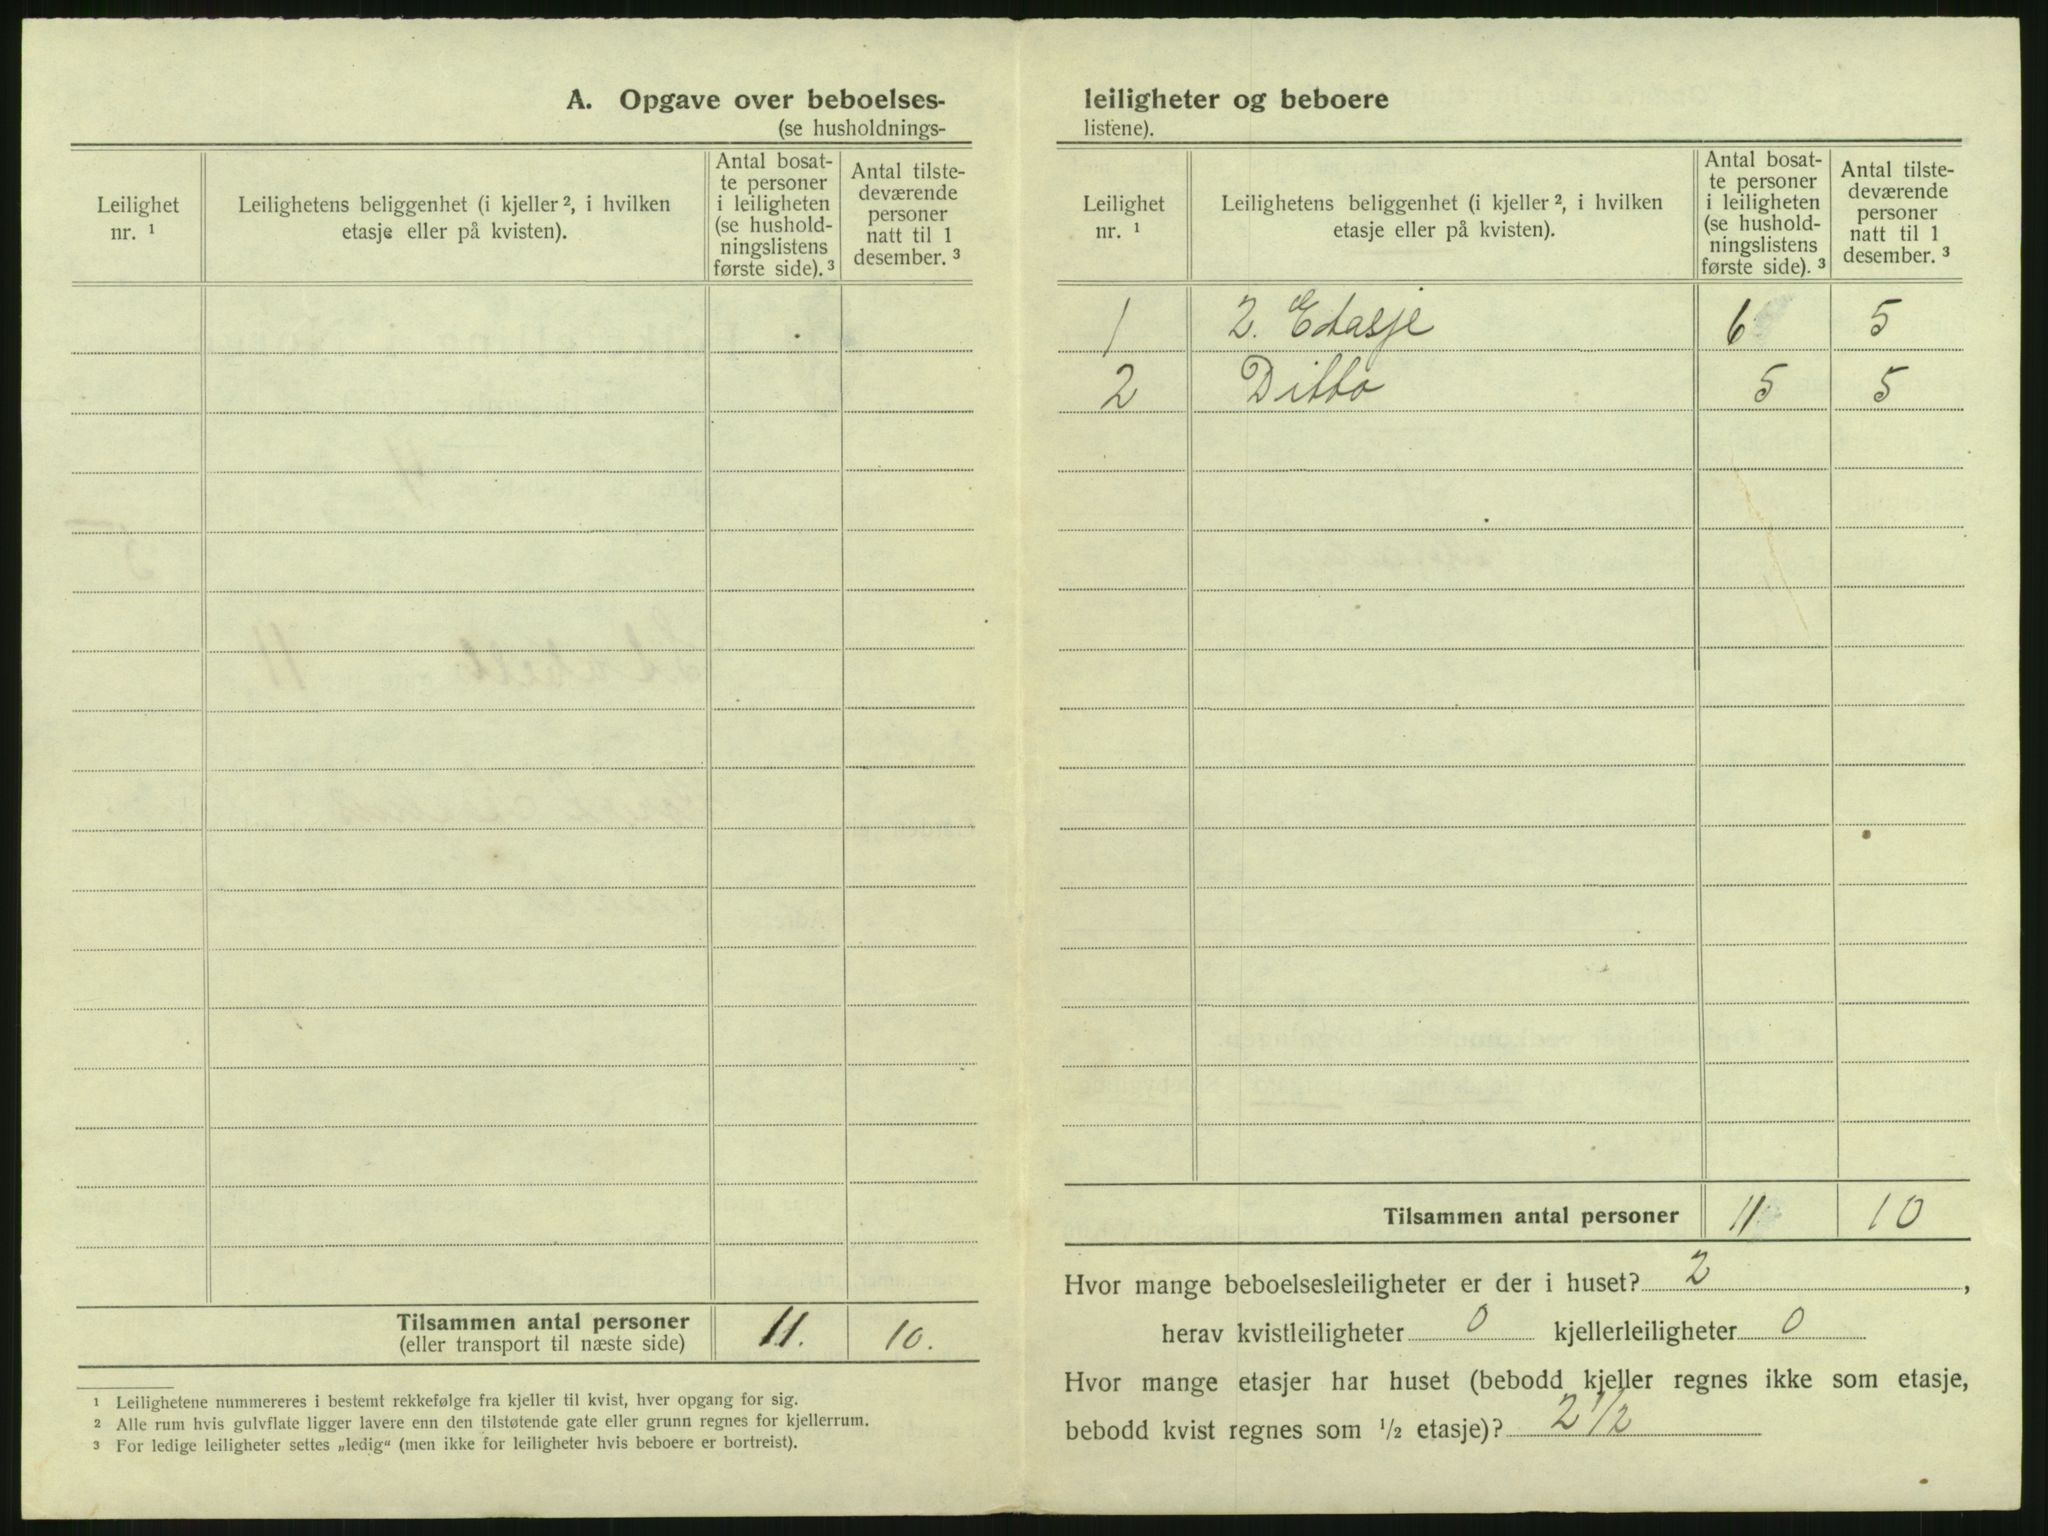 A. Opgave over beboelses-
(se husholdnings-
Leilighet nr. ¹
Leilighetens beliggenhet (i kjeller ², i hvilken etasje eller på kvisten).
Antal bosat-
te personer
i leiligheten
(se hushold-
ningslistens
første side). ³
Antal tilste-
deværende
personer
natt til 1
desember. ³
Tilsammen antal personer 11. 10.
(eller transport til næste side)
¹ Leilighetene nummereres i bestemt rekkefølge fra kjeller til kvist, hver opgang for sig.
² Alle rum hvis gulvflate ligger lavere enn den tilstøtende gate eller grunn regnes for kjellerrum.
³ For ledige leiligheter settes „ledig“ (men ikke for leiligheter hvis beboere er bortreist).
leiligheter og beboere
listene).
Leilighet nr. ¹
Leilighetens beliggenhet (i kjeller ², i hvilken etasje eller på kvisten).
Antal bosat-
te personer
i leiligheten
(se hushold-
ningslistens
første side). ³
Antal tilste-
deværende
personer
natt til 1
desember. ³
1 2. Etasje 6 5
2 Ditto 5 5
Tilsammen antal personer 11 10
Hvor mange beboelsesleiligheter er der i huset? 2,
herav kvistleiligheter 0 kjellerleiligheter 0
Hvor mange etasjer har huset (bebodd kjeller regnes ikke som etasje,
bebodd kvist regnes som ½ etasje)? 2 1/2